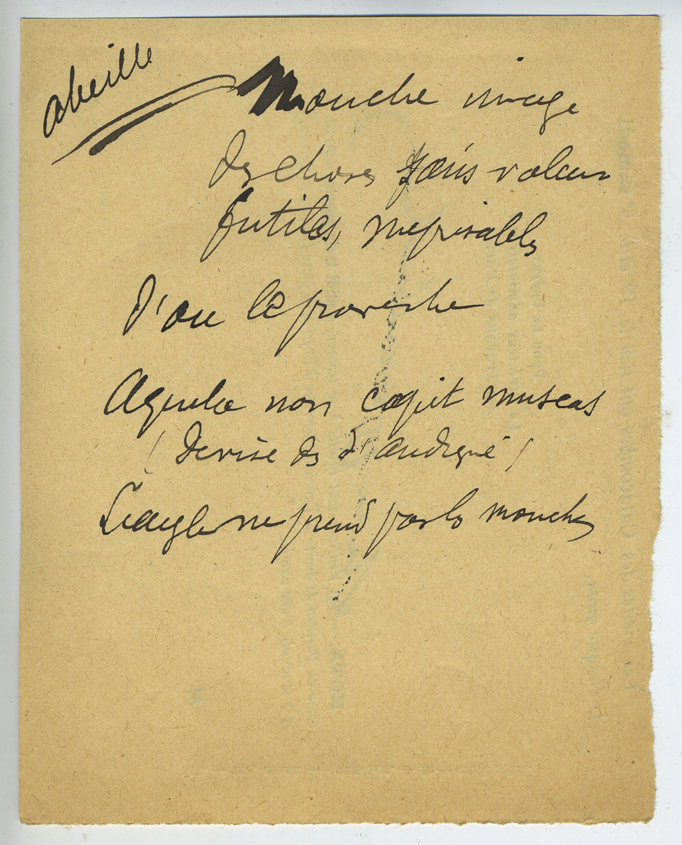 abeille
Mouche image
des choses sans valeur
futiles, meprisables
D'ou le proverbe
Aquila non capit muscas
(devise des d'Andigné)
L'aigle ne prend pas les mouches